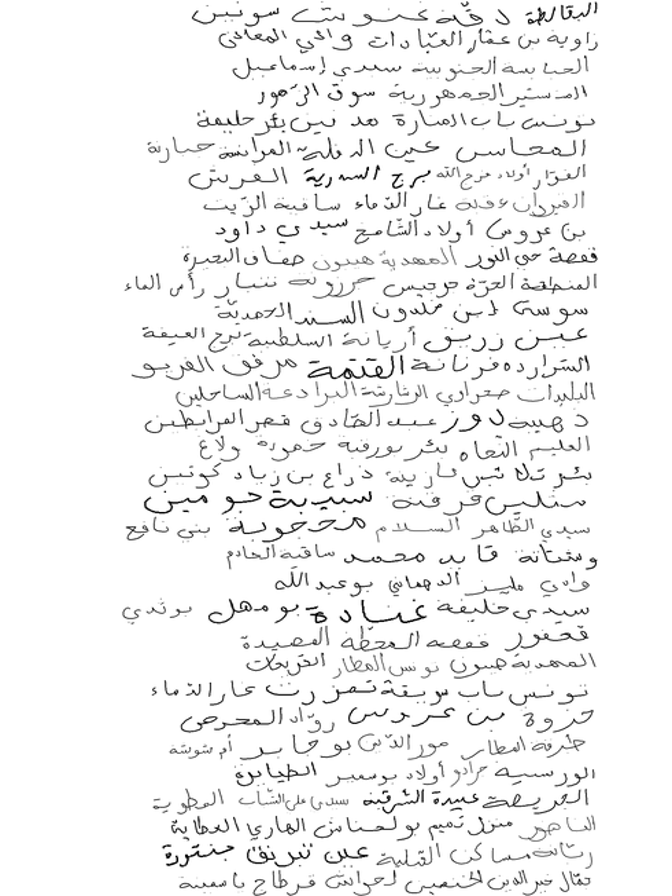 البقالطة دقة غنوش سونين
زاوية بن عمار العبادات وادي المعاني
الحبابسة الجنوبية سيدي إسماعيل
المنستير الجمهورية سوق الزهور
تونس باب المنارة مدنين بئر خليفة
المحاسن عين الدفلة العرائسة جبارنة
القزاز أولاد فرج الله برج السدرية العرش
القيروان عقبة غار الدماء ساقية الزيت
بن عروس أولاد الشامخ سيدي داود
قفصة حي النور المهدية هيبون ضفاف البحيرة
المنطقة الحرة جرجيس جرزونة شنبار رأس الماء
سوسة ابن خلدون السند الحمدية
عين زريق أريانة السلطنية برج العيفة
الشرارده فرنانة القتمة مرفق الفريو
البليدات صحراوي الرشارشة البرادعة الساحلين
ذهيبة لاوز عبد الصادق قصر المرابطين
العليم النجاه بئر بورقبة حمرة ولاغ
بئر تلاثين نازينة ذراع بن زياد كوتين
ستليس قرقنة سبيبة جومين
سيدي الظاهر السلام محجوبة بني نافع
وشتاتة قايد محمد ساقية الخادم
وادي مليز الدهماني بوعبد الله
سيدي خليفة غنادة بومهل بوثدي
قحفور قفصة المحطة المصيدة
المهدية هيبون تونس المطار الفريحات
تونس باب سويقة تمزرت غار الدماء
حزوة بن عروس رواد المحرص
طبرقة المطار مور الدين بوجابر أم شوشة
الورسية جرادو أولاد بوسمير الطيايرة
الجريصة عميرة الشرقية سيدي علي الشاب العطوية
الناظور منزل تميم بولحناش الهاري العطاية
رتانة مساكن القبلية عين تبرنق جنتورة
تمثال خير الدين الخنفسي لحراش قرطاج ياسمينة